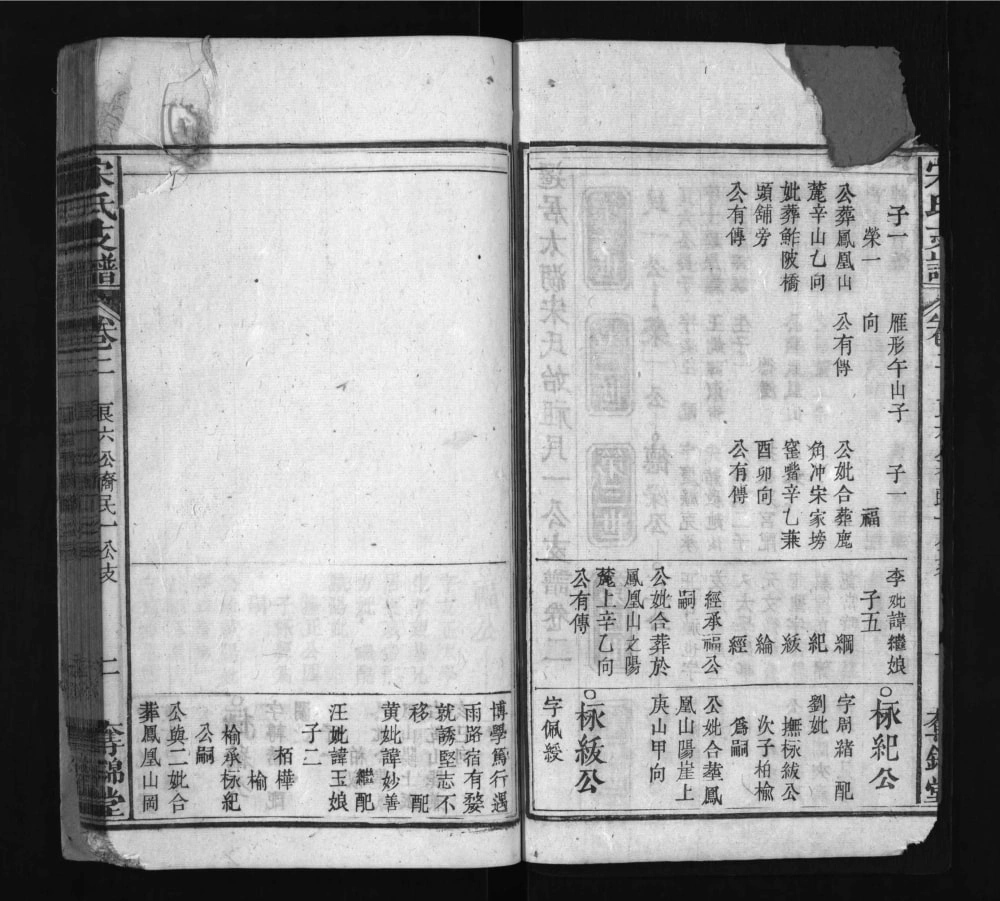 子一
榮一
公葬鳳凰山
麓辛山乚向
妣葬鮓陂橋
頭舖旁
公有傳
雁形午山子
向
公有傳
子一
福
公妣合葬鹿
角冲宋家塝
窰嘴辛乚兼
酉卯向
公有傳
李妣諱繼娘
子五
綱
紀
綬
綸
經
經承福公
嗣
公妣合葬於
鳳凰山之陽
麓上辛乙向
公有傳
○柇紀公
字周緒 配
劉妣
撫柇綬公
次子柏榆
爲嗣
公姚合塟鳳
凰山陽崖上
庚山甲向
○柇綬公
字佩綬
博學篤行遇
雨路宿有嫠
就誘堅志不
移 配
黄妣諱妙善
繼配
汪妣諱玉娘
子二
柏樺
榆
榆承柇紀
公嗣
公與二妣合
葬鳳凰山岡
宋氏支譜
卷二
良六公裔民一公支
二
奪錦堂